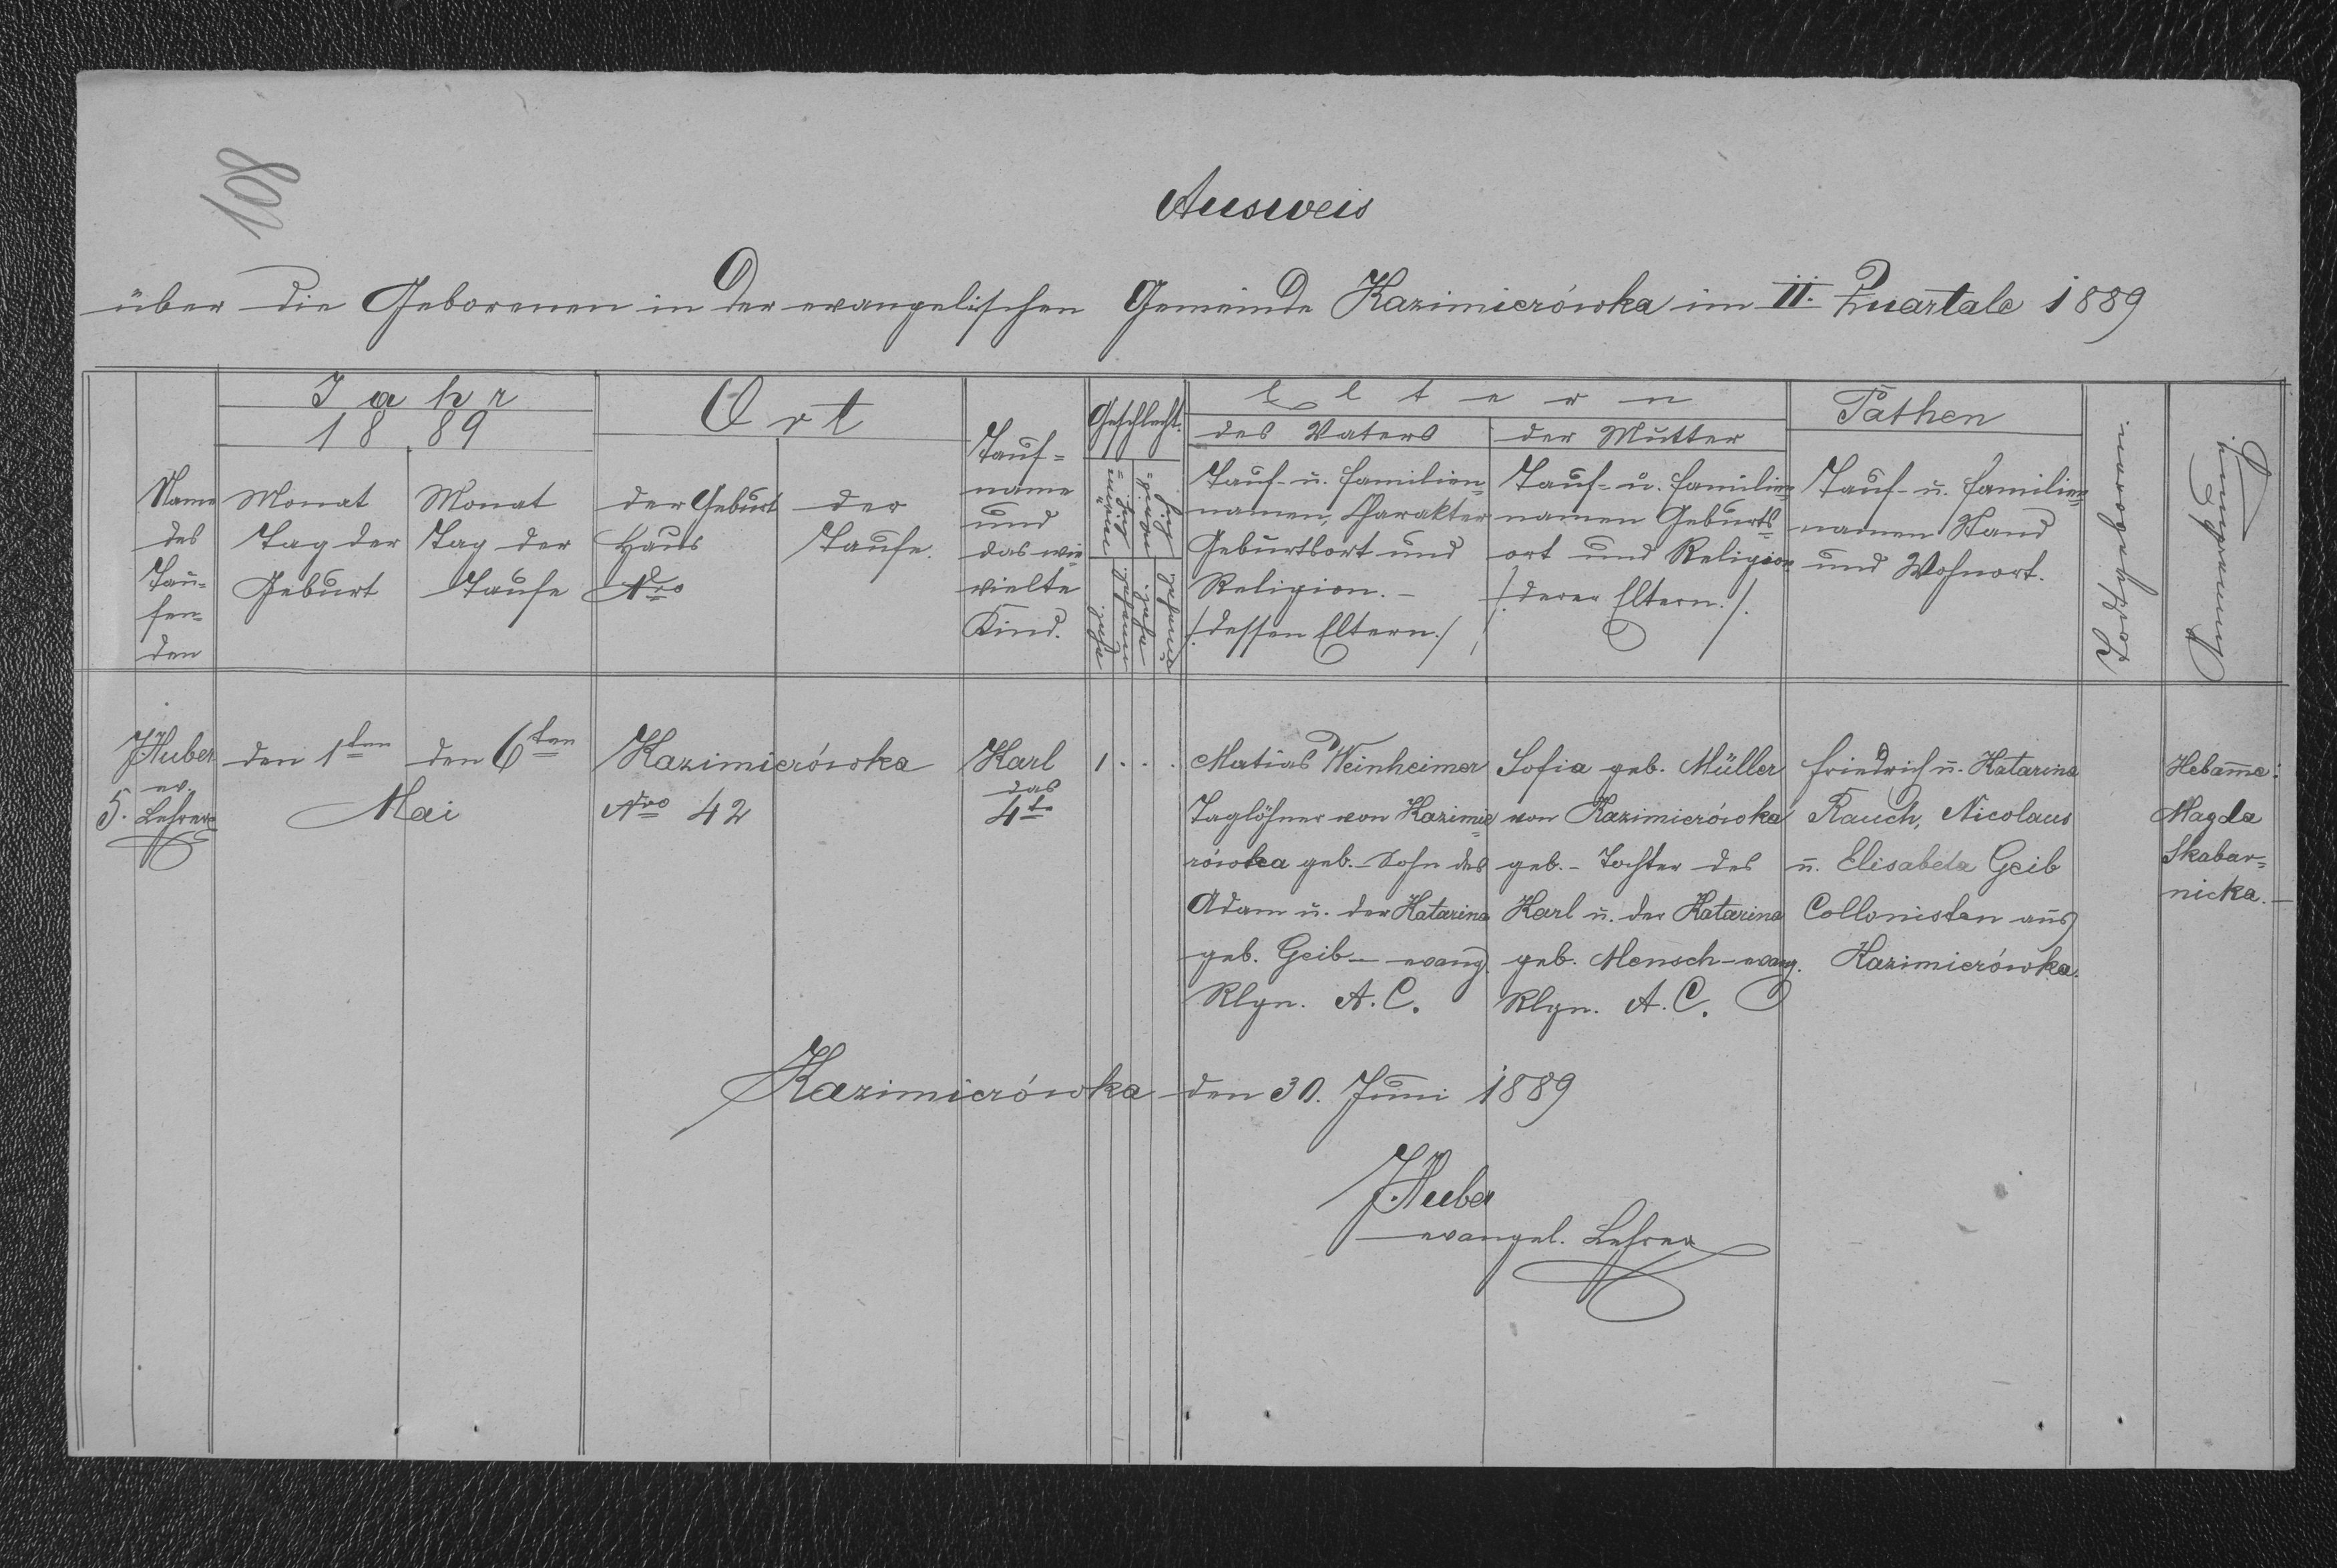 108
Ausweis
über die Geborenen in der evangelischen Gemeinde Kazimierówka im II. Quartale 1889
Name
des
Tau-
fen-
den
Jahr
1889
Monat
Tag der
Geburt
Monat
Tag der
Taufe
Ort
der Geburt
Haus
Nro
der
Taufe.
Tauf=
name
und
das wie=
vielte
Kind.
Geschlecht.
Eltern
des Vaters
Tauf- u. Familien=
namen, Charakter
Geburtsort und
Religion. -
/: dessen Eltern :/
der Mutter
Tauf- u. Familien=
namen Geburts=
ort und Religion
/: deren Eltern. :/
Pathen
Tauf- u. Familien=
namen Stand
und Wohnort.
Todtgeboren.
Anmerkung.
5.
JHuber
ev.
Lehrer
den 1ten
den 6ten
Mai
Kazimierówka
Nro 42
Karl
das
4te
1 . . .
Matias Weinheimer
Taglöhner von Kazimie=
rówka geb. – Sohn des
Adam u. der Katarina
geb. Geib – evang.
Rlgn. A. C.
Sofia geb. Müller
von Kazimierówka
geb. – Tochter des
Karl u. der Katarina
geb. Mensch – evang.
Rlgn. A. C.
Friedrich u. Katarina
Rauch, Nicolaus
u. Elisabeta Geib
Collonisten aus
Kazimierówka.
Hebamme:
Magda
Skabar=
nicka. –
Kazimierówka den 30. Juni 1889
JHuber
evangel. Lehrer